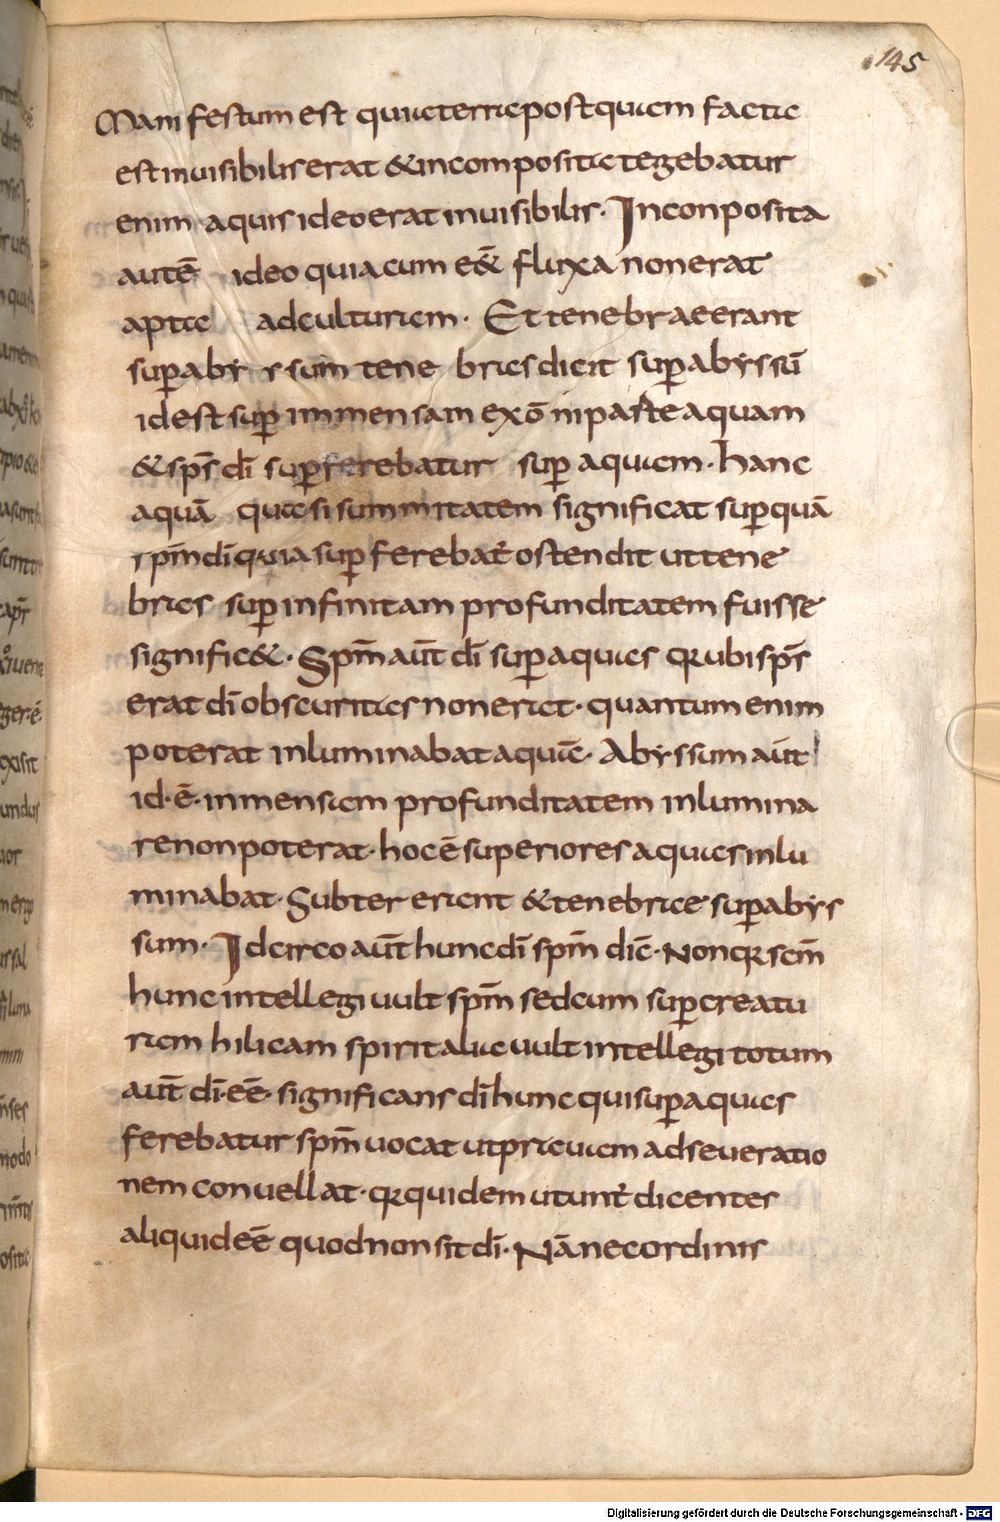 145
Manifestum est quia terra postquam facta
est inuisibilis erat & incomposita tegebatur
enim aquis ideo erat inuisibilis· Inconposita
autē ideo quia cum e&̄ fluxa non erat
apta ad culturam· Et tenebrae erant
sup̱ aby ssum tene bras dicit sup̱ abyssū
id est sup̱ immensam ex ō ni parte aquam
& sp̄s dī sup̱ferebatur sup̱ aquam· hanc
aquā quasi summitatem significat sup̱ quā
sp̄m dī quia sup̱ferebat᷒ ostendit ut tene
bras sup̱ infinitam profunditatem fuisse
signific&· Sp̄m aūt dī sup̱ aquas qꝛ ubi sp̄s
erat dī obscuritas non erat· quantum enim
poterat inluminabat aquā· Abyssum aūt
id·ē· inmensam profunditatem inlumina
re non poterat· hoc ē superiores aquas inlu
minabat· Subter erant & tenebrae sup̱ abys
sum· Idcirco aūt hunc dī sp̄m dic̄· Non qꝛ sc̄m
hunc intellegi uult sp̄m sed cum sup̱ creatu
ram hilicam spiritalē uult intellegi totum
aūt dī·eē· significans dī hunc qui sup̱ aquas
ferebatur sp̄m uocat ut prauam adseueratio
nem conuellat· qꝛ quidem utunt᷒ dicentes
aliquid eē quod non sit dī· Nā nec ordinis
Digitalisierung gefördert durch die Deutsche Forschungsgemeinschaft - DFG